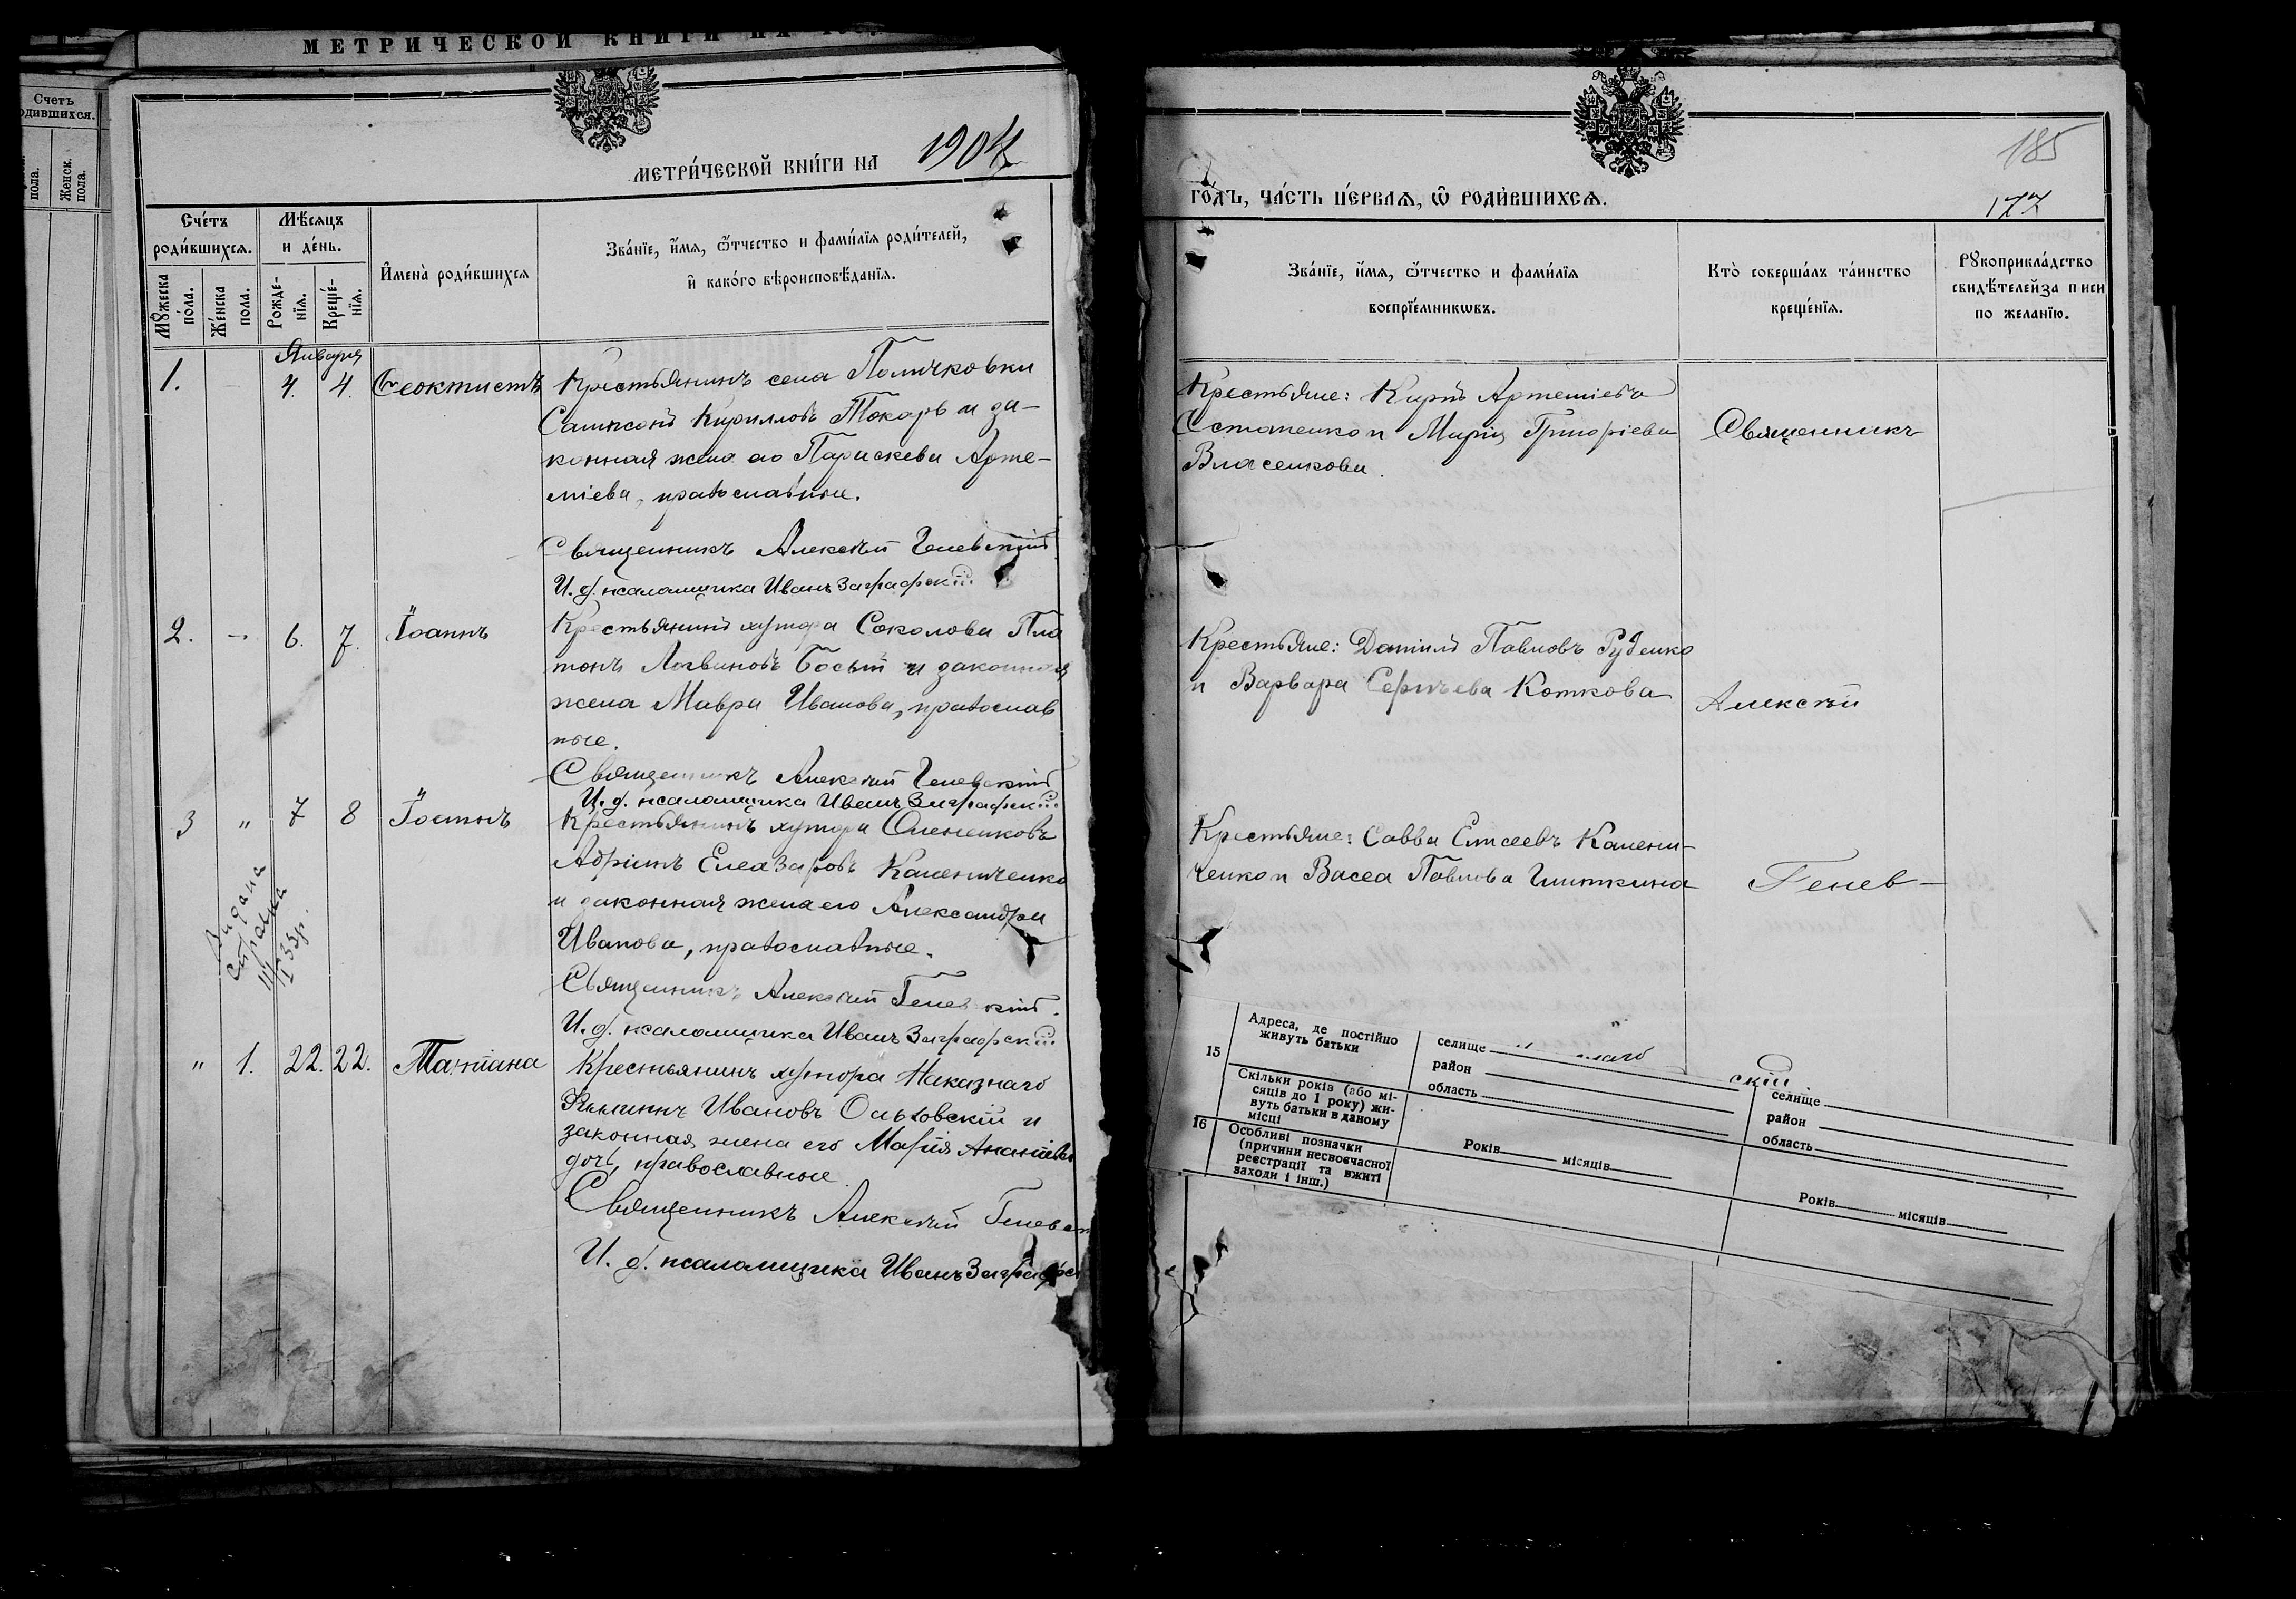 МЕТРИЧЕСКОЙ КНИГИ НА
Счетъ
одившихся.
пола.
Женск.
пола.
МЕТРИ́ЧЕСКОЙ КНИ́ГИ НА 1904
Сче́тъ
роди́вшихся.
Мѣ́сяцъ
и де́нь.
Мꙋ́жеска
по́ла.
Же́нска
пола.
Рожде-
нїя.
Креще́-
нїя.
И҆мена̀ роди́вшихся
Зва́нїе, и҆́мя, ѻ҆́тчество и фами́лїя роди́телей,
и҆ како́го вѣроисповѣ́данїя.
Января
1.
4.
4.
Ѳеоктистъ
Крестьянинъ села Поличковки
Сампсонъ Кирилловъ Токарь и за-
конная жена его Параскева Арте-
міева, православные.
Священникъ Алексѣй Геневскій
И. д. псаломщика Иванъ Заграфскій
2.
6.
7.
Іоаннъ
Крестьянинъ хутора Соколова Пла
тонъ Логвиновъ Босый и законная
жена Мавра Иванова, православ
ные.
Священникъ Алексѣй Геневскій
И. д. псаломщика Иванъ Заграфскій
3
"
7
8
Іоаннъ
Крестьянинъ хутора
Адріанъ Елеазаровъ Калениченко
и законная жена его Александра
Иванова, православные.
Священникъ Алексѣй Геневскій.
И. д. псаломщика Иванъ Заграфскій
Видана
"
1.
22.
22.
Татіана
Крестьянинъ хутора Наказнаго
Ивановъ Ольховскій и
законная жена его Марія Ананіева
дочь, православные.
Священникъ Алексѣй Геневск
И. д. псаломщика Иванъ Заграфск
185
177
ГО́ДЪ, ЧА́СТЬ ПЕ́РВАѦ, Ѡ҆ РОДИ́ВШИХСѦ.
Зва́нїе, и҆́мя, ѻ҆́тчество и фами́лїя
воспрїе́мникѡвъ.
Кто̀ соверша́лъ та́инство
креще́нїя.
Рꙋкоприкла́дство
свидѣ́телей за писи
по жела́нїю.
Крестьяне: Киръ Артеміевъ
Остапенко и Марія Григоріева
Власенкова.
Священникъ
Крестьяне: Даніилъ Павловъ Руденко
и Варвара Сергѣева Коткова
Алексѣй
Крестьяне: Савва Елисеевъ Калени-
ченко и Васса Павлова
Генев-
скій
15
Адреса, де постійно
живуть батьки
селище
район
область
селище
район
область
Скільки років (або мі-
сяців до 1 року) жи-
вуть батьки в даному
місці
Років місяців
Років місяців
16
Особливі позначки
(причини несвоєчасної
реєстрації та вжиті
заходи і інш.)